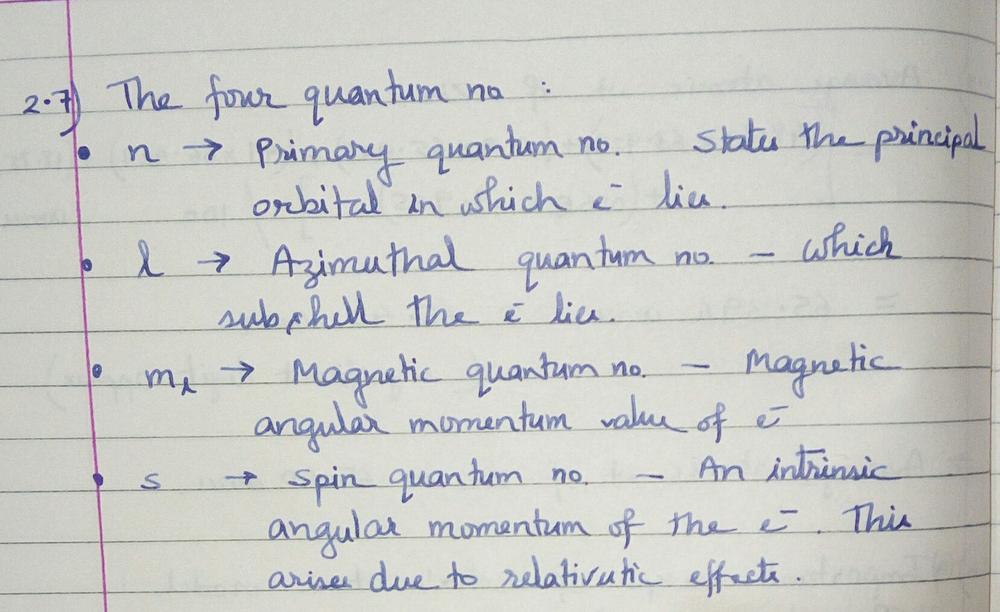 2.7) The four quantum no :
• n → Primary quantum no. States the principal
orbital in which e⁻ lies.
• l → Azimuthal quantum no. – which
subshell the e⁻ lies.
• mₗ → Magnetic quantum no. – Magnetic
angular momentum value of e⁻
• s → spin quantum no. – An intrinsic
angular momentum of the e⁻. This
arises due to relativistic effects.